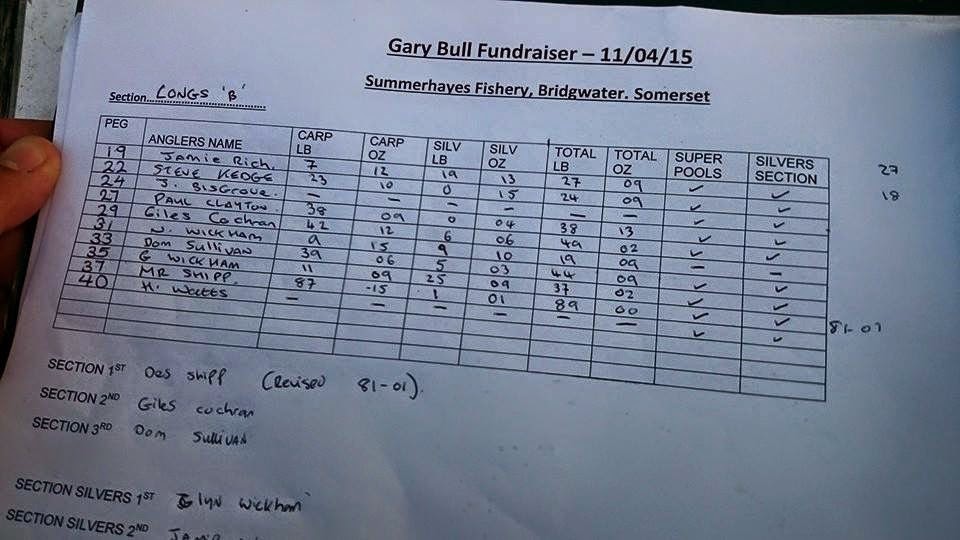 Gary Bull Fundraiser – 11/04/15
Summerhayes Fishery, Bridgwater. Somerset
Section.... LONGS 'B'
PEG ANGLERS NAME CARP LB CARP OZ SILV LB SILV OZ TOTAL LB TOTAL OZ SUPER POOLS SILVERS SECTION
19 Jamie Rich. 7 12 19 13 27 09 ✓ ✓ 27
22 STEVE KEDGE 23 10 0 15 24 09 ✓ ✓ 18
24 J. BISGROVE. — — — — — — ✓ ✓
27 PAUL CLAYTON 38 09 0 04 38 13 ✓ ✓
29 Giles Cochran 42 12 6 06 49 02 ✓ ✓
31 N. WICKHAM 9 15 9 10 19 09 — —
33 Dom SULLIVAN 39 06 5 03 44 09 ✓ ✓
35 G WICKHAM 11 09 25 09 37 02 ✓ ✓
37 MR SHIPP. 87 -15 1 01 89 00 ✓ ✓ 81-01
40 H. Watts — — — — — — ✓ ✓
SECTION 1ST Des Shipp (Revised 81-01).
SECTION 2ND Giles cochran
SECTION 3RD Dom Sullivan
SECTION SILVERS 1ST Glyn Wickham
SECTION SILVERS 2ND